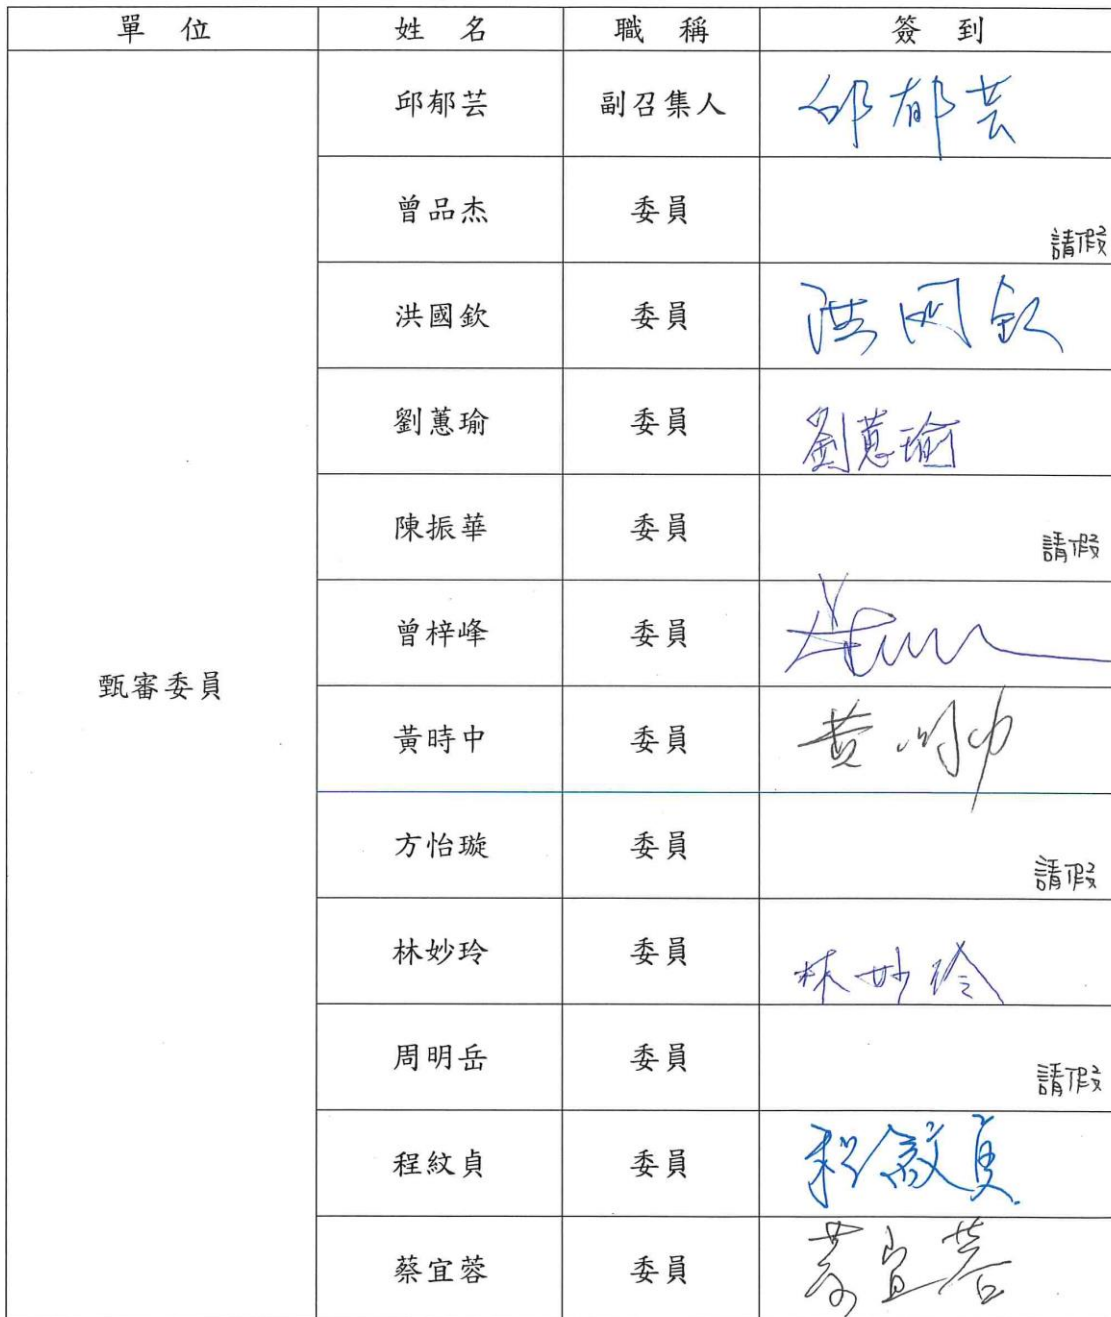 單位 姓名 職稱 簽到
邱郁芸 副召集人 邱郁芸
曾品杰 委員 請假
洪國欽 委員 洪国欽
劉蕙瑜 委員 劉蕙瑜
陳振華 委員 請假
曾梓峰 委員
甄審委員
黃時中 委員 黃时中
方怡璇 委員 請假
林妙玲 委員 林妙玲
周明岳 委員 請假
程紋貞 委員 程紋貞
蔡宜蓉 委員 蔡宜蓉